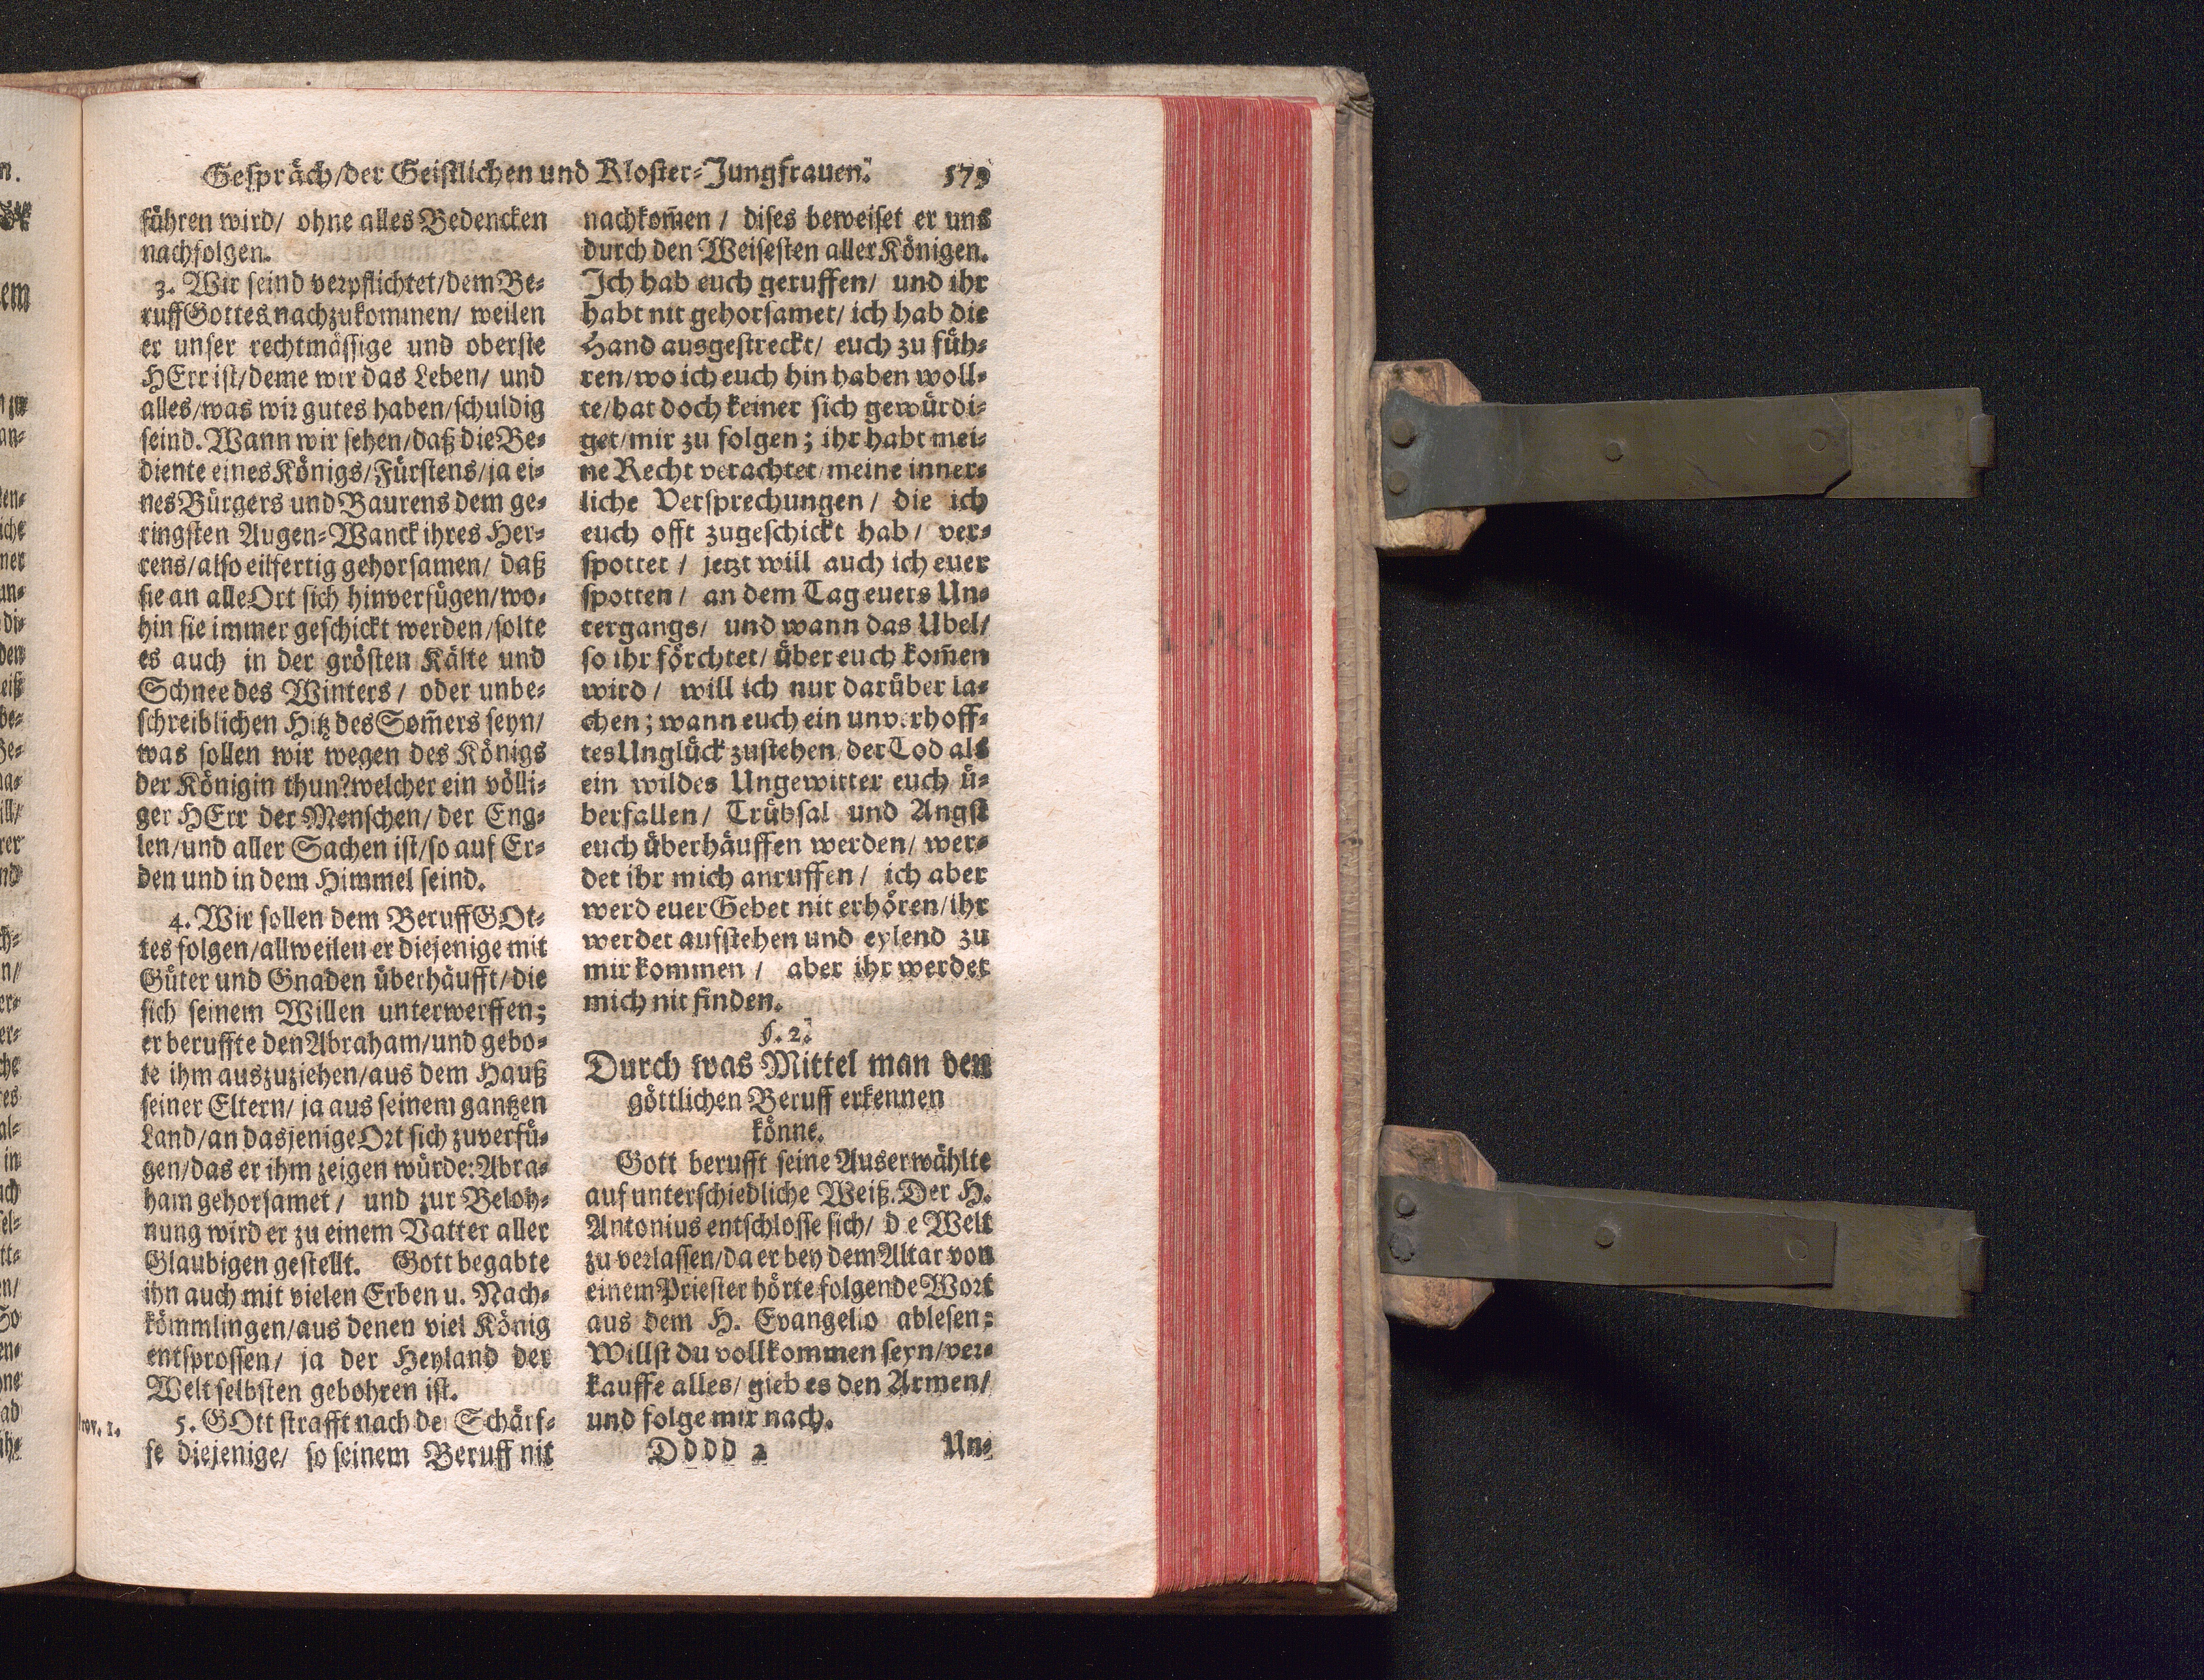 Gespräch/der Geistlichen und Kloster-Jungfrauen. 579
führen wird/ ohne alles Bedencken
nachfolgen.
3. Wir seind verpflichtet/dem Be-
ruff Gottes nachzukommen/ weilen
er unser rechtmässige und oberste
HErr ist/deme wir das Leben/ und
alles/was wir gutes haben/schuldig
seind. Wann wir sehen/daß die Be-
diente eines Königs/Fürstens/ja ei-
nes Bürgers und Baurens dem ge-
ringsten Augen-Wanck ihres Her-
rens/also eilfertig gehorsamen/ daß
sie an alle Ort sich hinverfügen/wo-
hin sie immer geschickt werden/solte
es auch in der grösten Kälte und
Schnee des Winters/ oder unbe-
schreiblichen Hitz des Som̃ers seyn/
was sollen wir wegen des Königs
der Königin thun?welcher ein völli-
ger HErr der Menschen/ der Eng-
len/und aller Sachen ist/so auf Er-
den und in dem Himmel seind.
4. Wir sollen dem Beruff GOt-
tes folgen/allweilen er diejenige mit
Güter und Gnaden überhäufft/die
sich seinem Willen unterwerffen;
er beruffte den Abraham/und gebo-
te ihm auszuziehen/aus dem Hauß
seiner Eltern/ ja aus seinem gantzen
Land/an dasjenige Ort sich zuverfü-
gen/das er ihm zeigen würde: Abra-
ham gehorsamet/ und zur Beloh-
nung wird er zu einem Vatter aller
Glaubigen gestellt. Gott begabte
ihn auch mit vielen Erben u. Nach-
kömmlingen/aus denen viel König
entsprossen/ ja der Heyland der
Welt selbsten gebohren ist.
rov. 1.
5. GOtt strafft nach der Schärf-
fe diejenige/ so seinem Beruff nit
nachkom̃en/ dises beweiset er uns
durch den Weisesten aller Königen.
Ich hab euch geruffen/ und ihr
habt nit gehorsamet/ ich hab die
Hand ausgestreckt/ euch zu füh-
ren/wo ich euch hin haben woll-
te/hat doch keiner sich gewürdi-
get/mir zu folgen; ihr habt mei-
ne Recht verachtet/meine inner-
liche Versprechungen/ die ich
euch offt zugeschickt hab/ ver-
spottet/ jetzt will auch ich euer
spotten/ an dem Tag euers Un-
tergangs/ und wann das Ubel/
so ihr förchtet/ über euch kom̃en
wird/ will ich nur darüber la-
chen; wann euch ein unverhoff-
tes Unglück zustehen/der Tod als
ein wildes Ungewitter euch ü-
berfallen/ Trübsal und Angst
euch überhäuffen werden/ wer-
det ihr mich anruffen/ ich aber
werd euer Gebet nit erhören/ihr
werdet aufstehen und eylend zu
mir kommen/ aber ihr werdet
mich nit finden.
§. 2.
Durch was Mittel man den
göttlichen Beruff erkennen
könne.
Gott berufft seine Auserwählte
auf unterschiedliche Weiß. Der H.
Antonius entschlosse sich/ d e Welt
zu verlassen/da er bey dem Altar von
einem Priester hörte folgende Wort
aus dem H. Evangelio ablesen:
Willst du vollkommen seyn/ver-
kauffe alles/ gieb es den Armen/
und folge mir nach.
Dddd 2 Un-